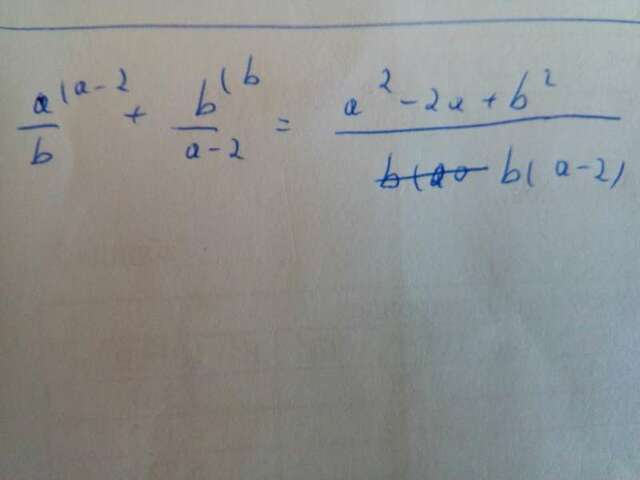 a(a-2/b + b(b/a-2 = a²-2a+b²/b(a-2)